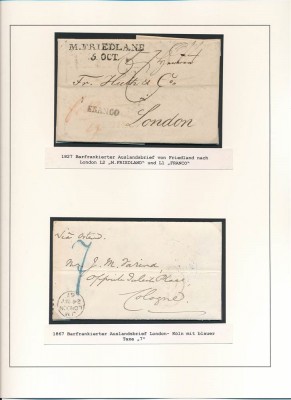 M. FRIEDLAND
5. OCT.
Fr. Huth & Co.
FRANCO
London
1827 Barfrankierter Auslandsbrief von Friedland nach
London L2 „M.FRIEDLAND" und L1 „FRANCO"
Via Ostend.
7
Mr J. M. Farina
opposite Julichs Platz
Cologne
1867 Barfrankierter Auslandsbrief London- Köln mit blauer
Taxe „7"